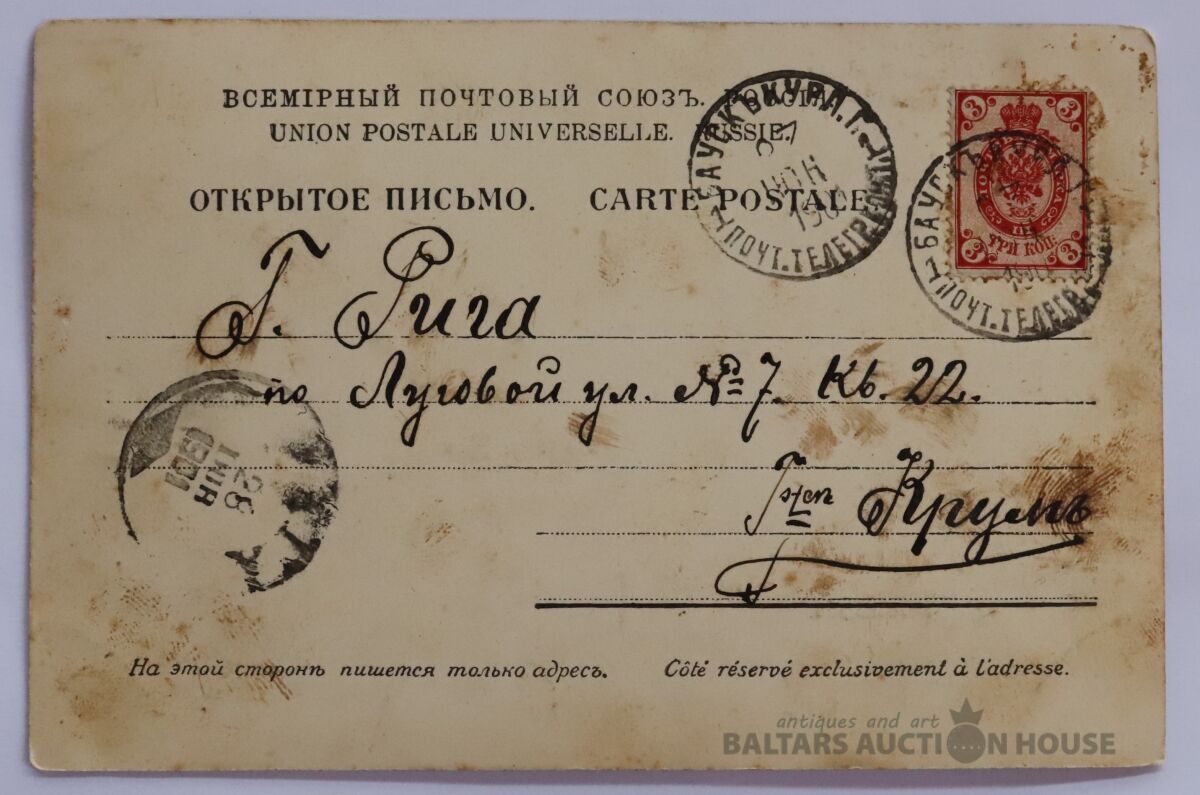 ВСЕМІРНЫЙ ПОЧТОВЫЙ СОЮЗЪ. РОССІЯ.
UNION POSTALE UNIVERSELLE. RUSSIE.
ОТКРЫТОЕ ПИСЬМО. CARTE POSTALE.
БАУСКЪ КУРЛ. Г.
ПОЧТ. ТЕЛЕГР.
3 3
ТРИ КОП.
3 3
БАУСКЪ
1 ПОЧТ. ТЕЛЕГР.
Г. Рига
по Луговой ул. № 7. Кв. 22.
Крумъ
28
На этой сторонѣ пишется только адресъ. Côté réservé exclusivement à l'adresse.
antiques and art
BALTARS AUCTION HOUSE